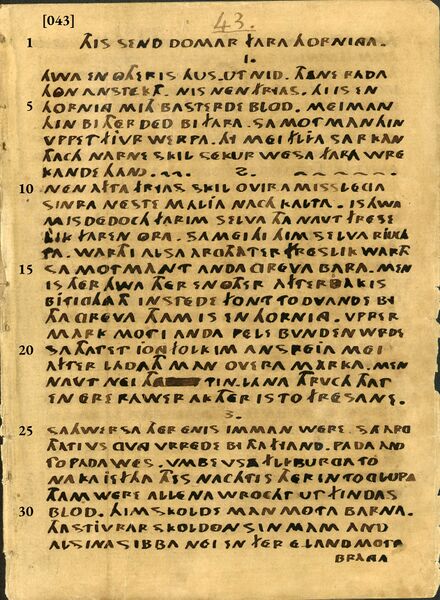 [043]
43.
1 THIS SEND DOMAR FARA HORNINGA.
1.
HWA EN OTHERIS HUS. UT NID. THENE RADA
HON ANSTEKT. NIS NEN FRYAS. HI IS EN
5 HORNING MITH BASTERDE BLOD. MEI MAN
HIN BITHER DED BIFARA. SA MOT MAN HIN
VPPET FJVR WERPA. HI MEI FLJA SA R KAN
THACH NARNE SKIL SEKUR WESA FARA WRE
KANDE HAND. 2.
10 NEN AFTA FRYAS SKIL OVIRA MISSLEGA
SINRA NESTE MALJA NACH KALTA. IS HWA
MISDEDOCH FARIM SELVA THA NAVT FRESE
LIK FAREN ORA. SA MEI HI HIM SELVA RIUCH
TA. WARTH I ALSA ARG THATER FRESLIK WARTH
15 SA MOT MANT ANDA GREVA BARA. MEN
IS THER HWA THER EN OTHER AFTERBAKIS
BITIGHATH IN STEDE FON TO DVANDE BI
THA GREVA THAM IS EN HORNING. VPPER
MARK MOT I ANDA PELE BUNDEN WRDE
20 SA THATET JONGFOLK IM ANSPEIA MEI
AFTER LADATH MAN OVERA MARKA. MEN
NAVT NEI THA TIN.LANA THRVCH THAT
EN ERERAWER AK THER IS TO FRESANE.
3.
25 SAHWERSA THER ENIS IMMAN WERE. SA ARG
THAT I VS GVNG VRREDE BI THA FIAND. PADA AND
TO PADA WES. VMBE VSA FLIBURGA TO
NAKA JEFTHA THES NACHTIS THER IN TO GLUPA
THAM WERE ALLENA WROCHT UT FINDAS
30 BLOD. HIM SKOLDE MAN MOTA BARNA.
THA STJVRAR SKOLDON SIN MAM AND
AL SINA SIBBA NEI EN FER E LAND MOTA
BRANGA